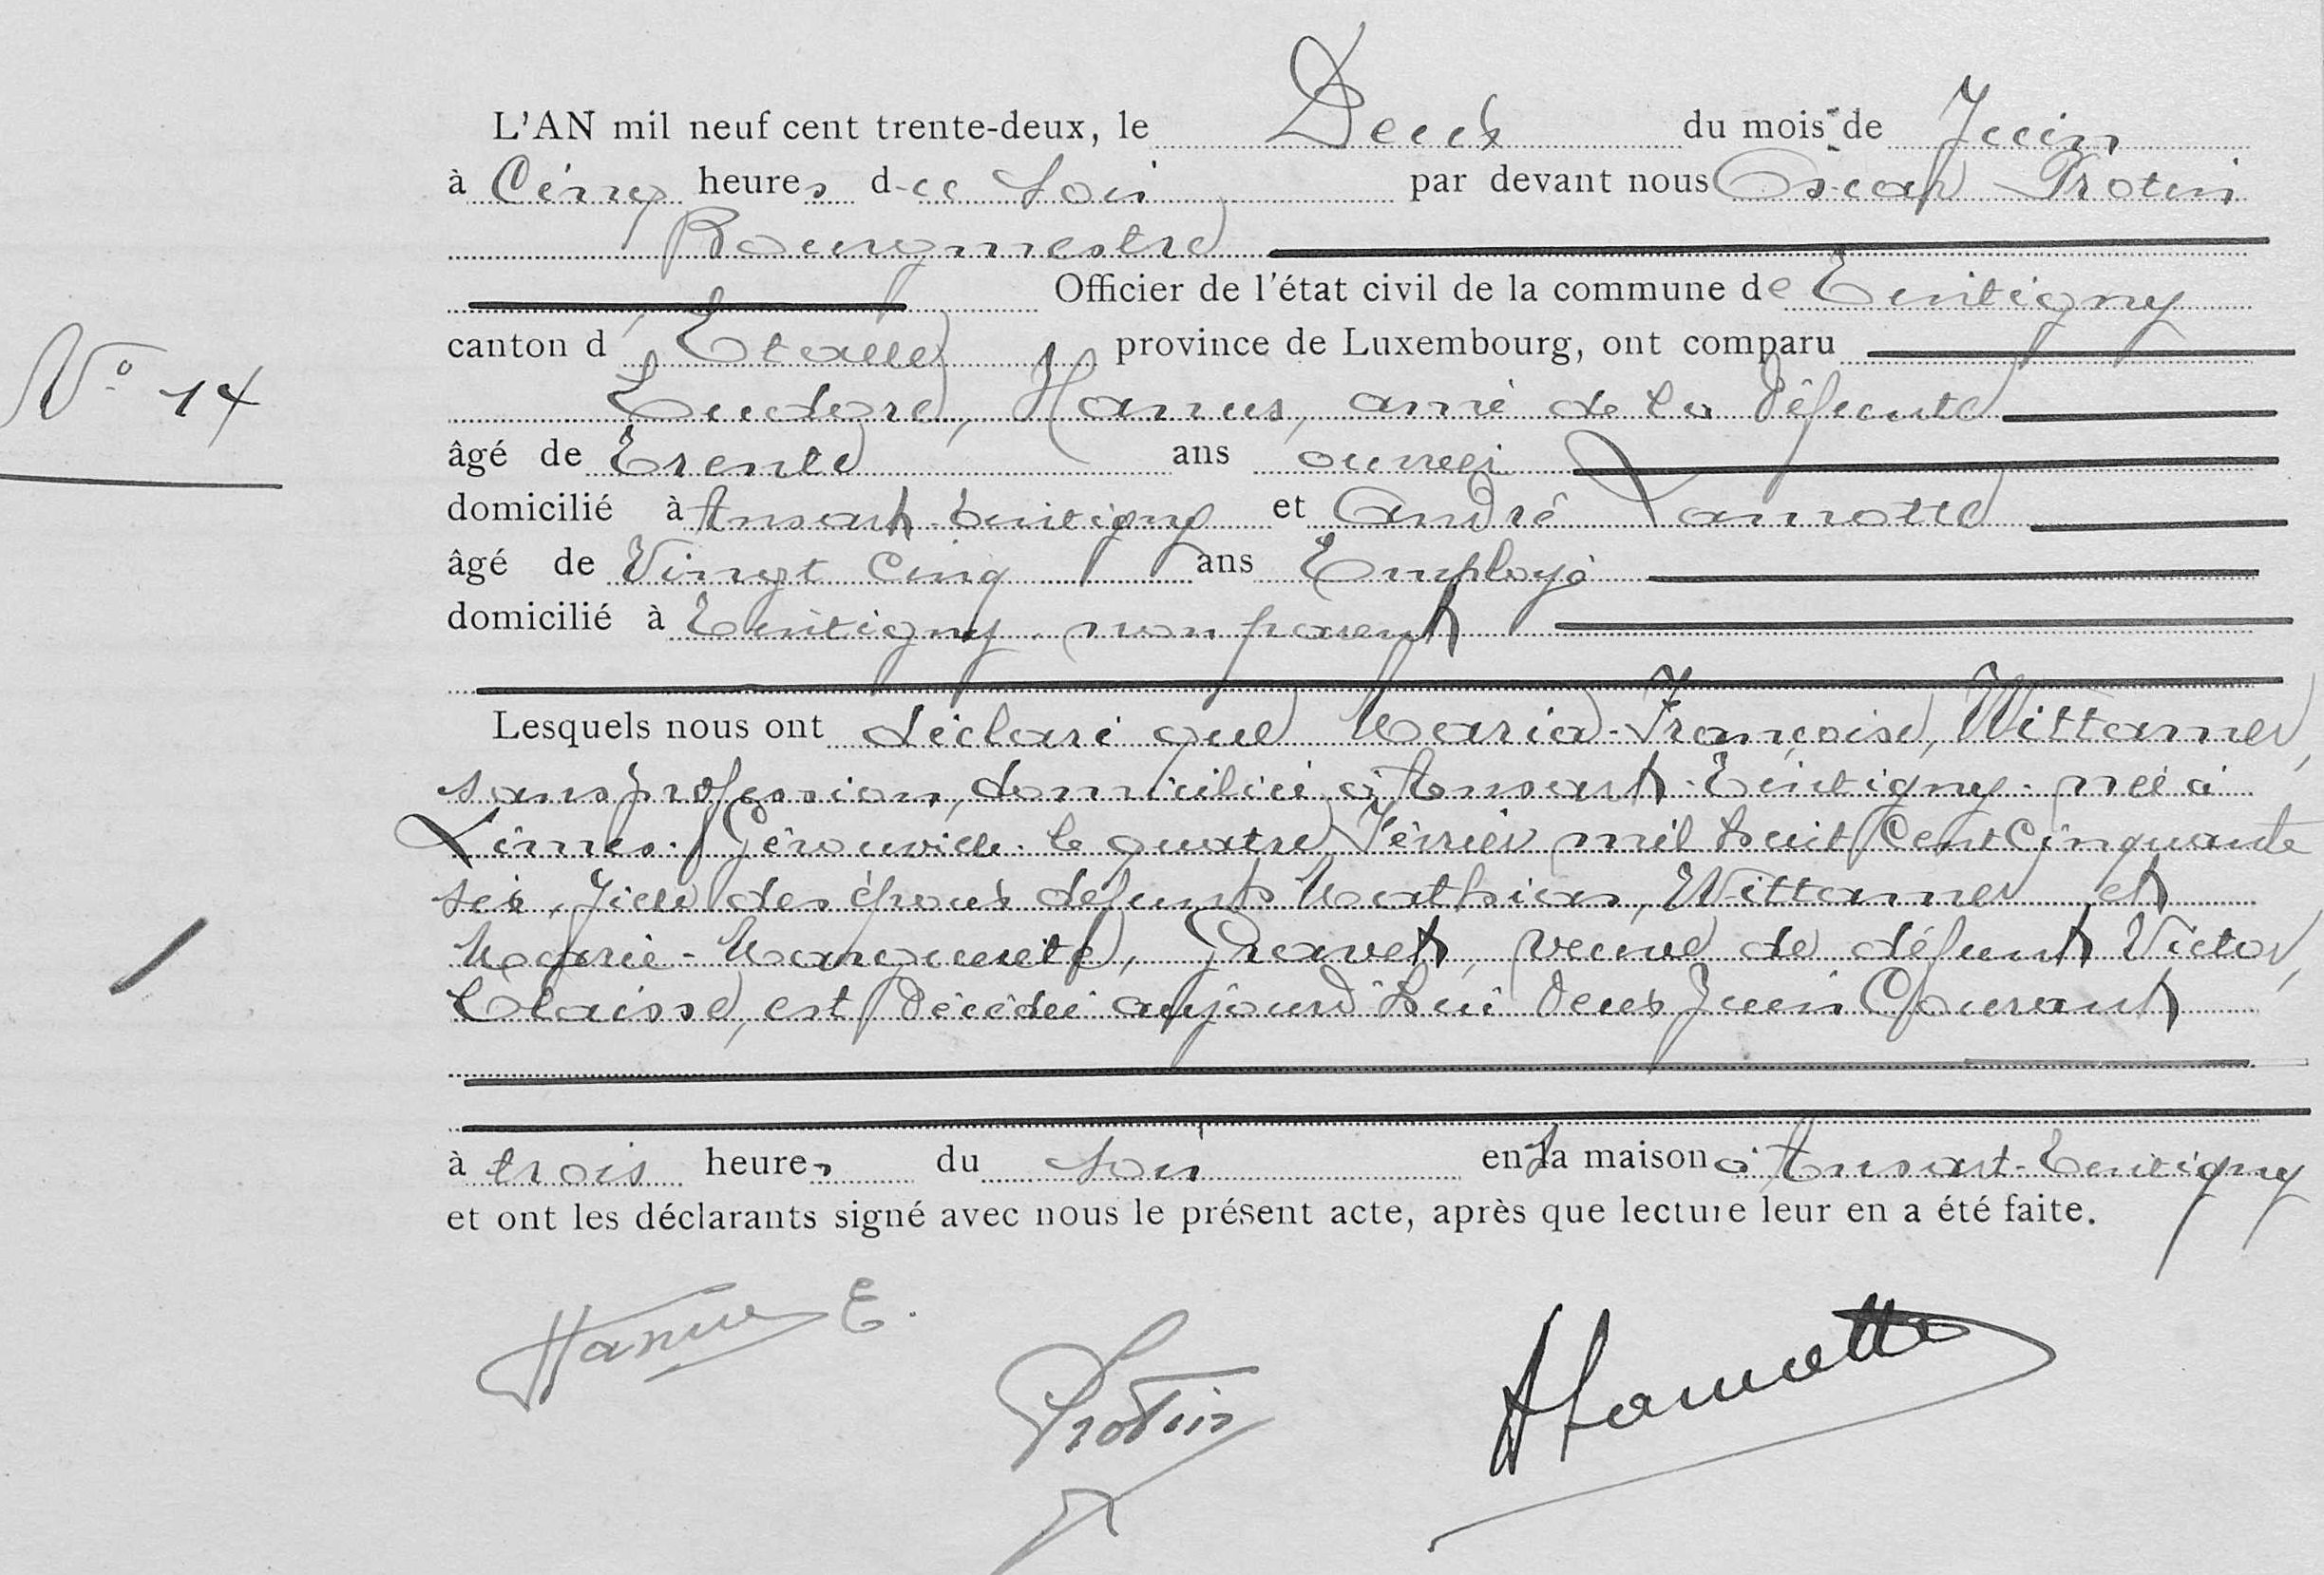 L'AN mil neuf cent trente-deux, le Deux du mois de Juin
à Cinq heures du Soir par devant nous Oscar Protin
Bourgmestre
Officier de l'état civil de la commune de Tintigny
canton d'Etalle province de Luxembourg, ont comparu
N° 14
Eudore, Hanus, ami de la défunte
âgé de Trente ans ouvrier
domicilié à Ansart-Tintigny et André Lamotte
âgé de Vingt Cinq ans Employé
domicilié à Tintigny non parent
Lesquels nous ont déclaré que Maria-Françoise, Wittamer,
sans profession, domiciliée à Ansart-Tintigny. née à
Limes-Gérouville le quatre Février mil huit Cent Cinquante
six, fille des époux défunts Mathias, Wittamer et
Marie-Marguerite, Gravet, veuve de défunt Victor,
Claisse, est décédée aujourd'hui deux Juin Courant
à trois heures du Soir en sa maison à Ansart-Tintigny
et ont les déclarants signé avec nous le présent acte, après que lecture leur en a été faite.
Hanus E.
Protin
A Lamotte